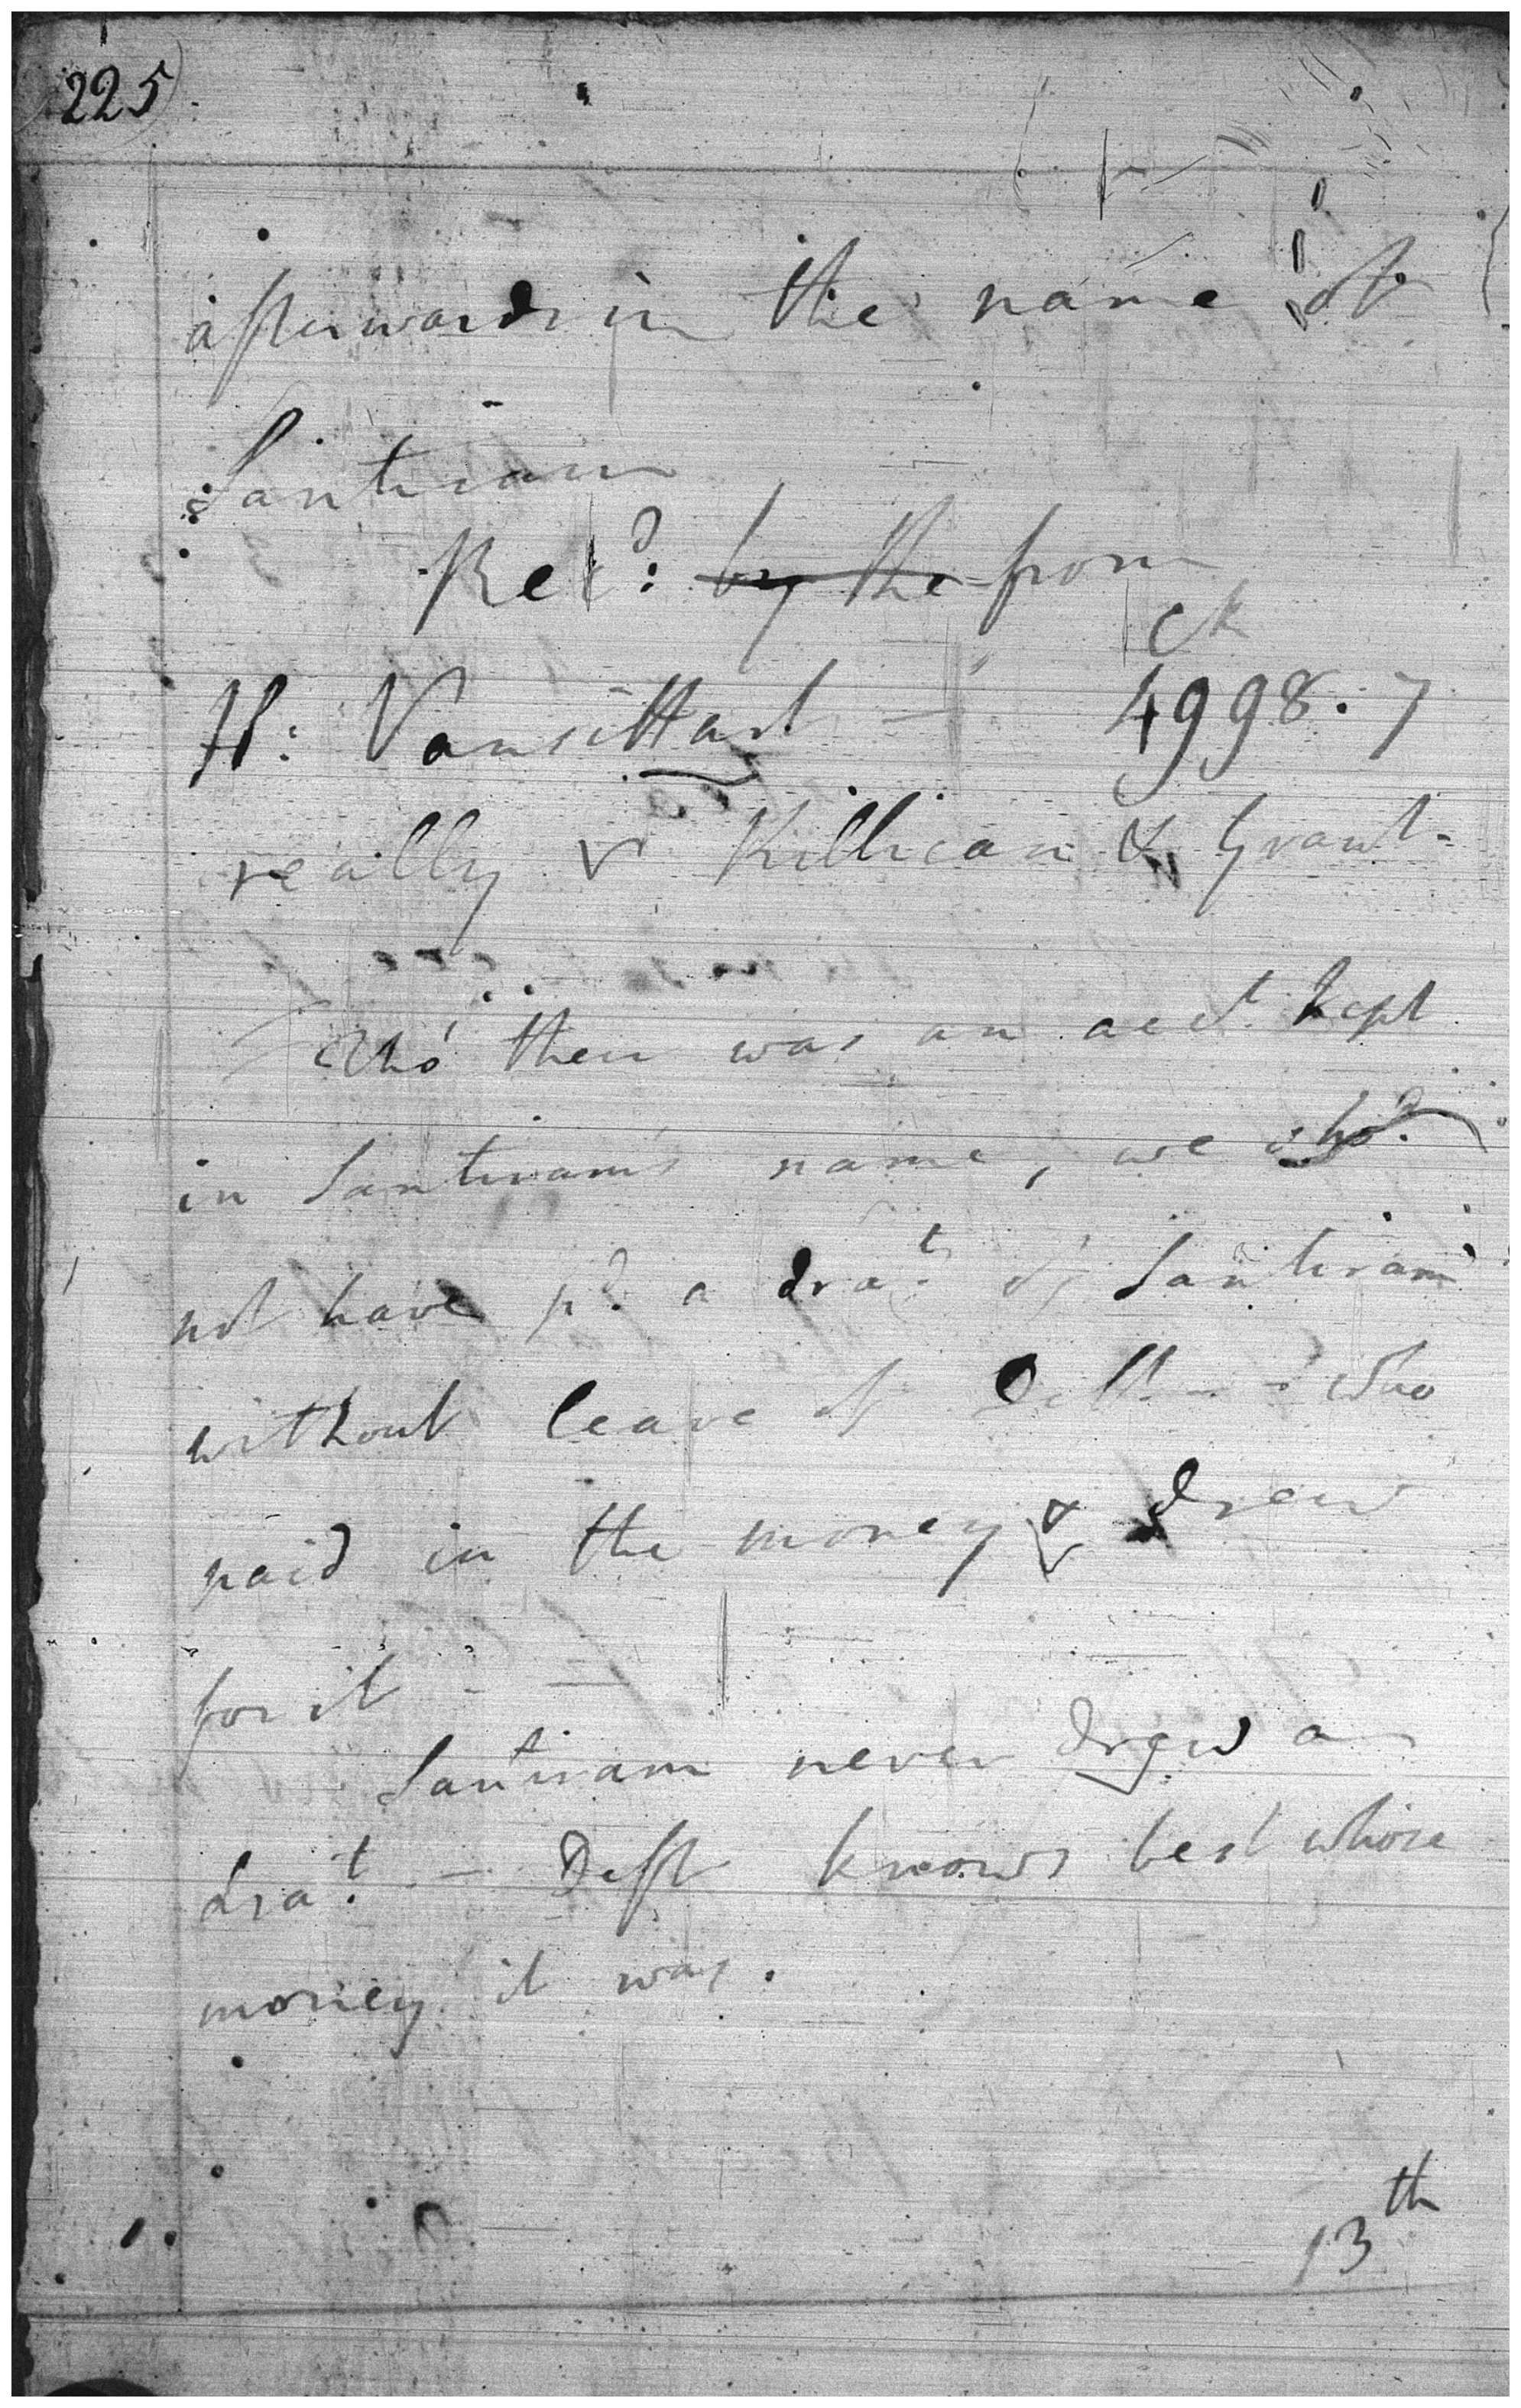 225
afterwards in the name of
Santiram
Rec:d by the from
CR
H: Vansittart - 4998. 7
really Killican & Grant -
Tho' there was an acct. kept
in Santiram's name, we sho:d
not have p:d a dra:t of Santiram
without leave of Deft - - Who
paid in the money & drew
for it - -
Santiram never drew a
dra:t - Deft knows best whose
money it was.
13th